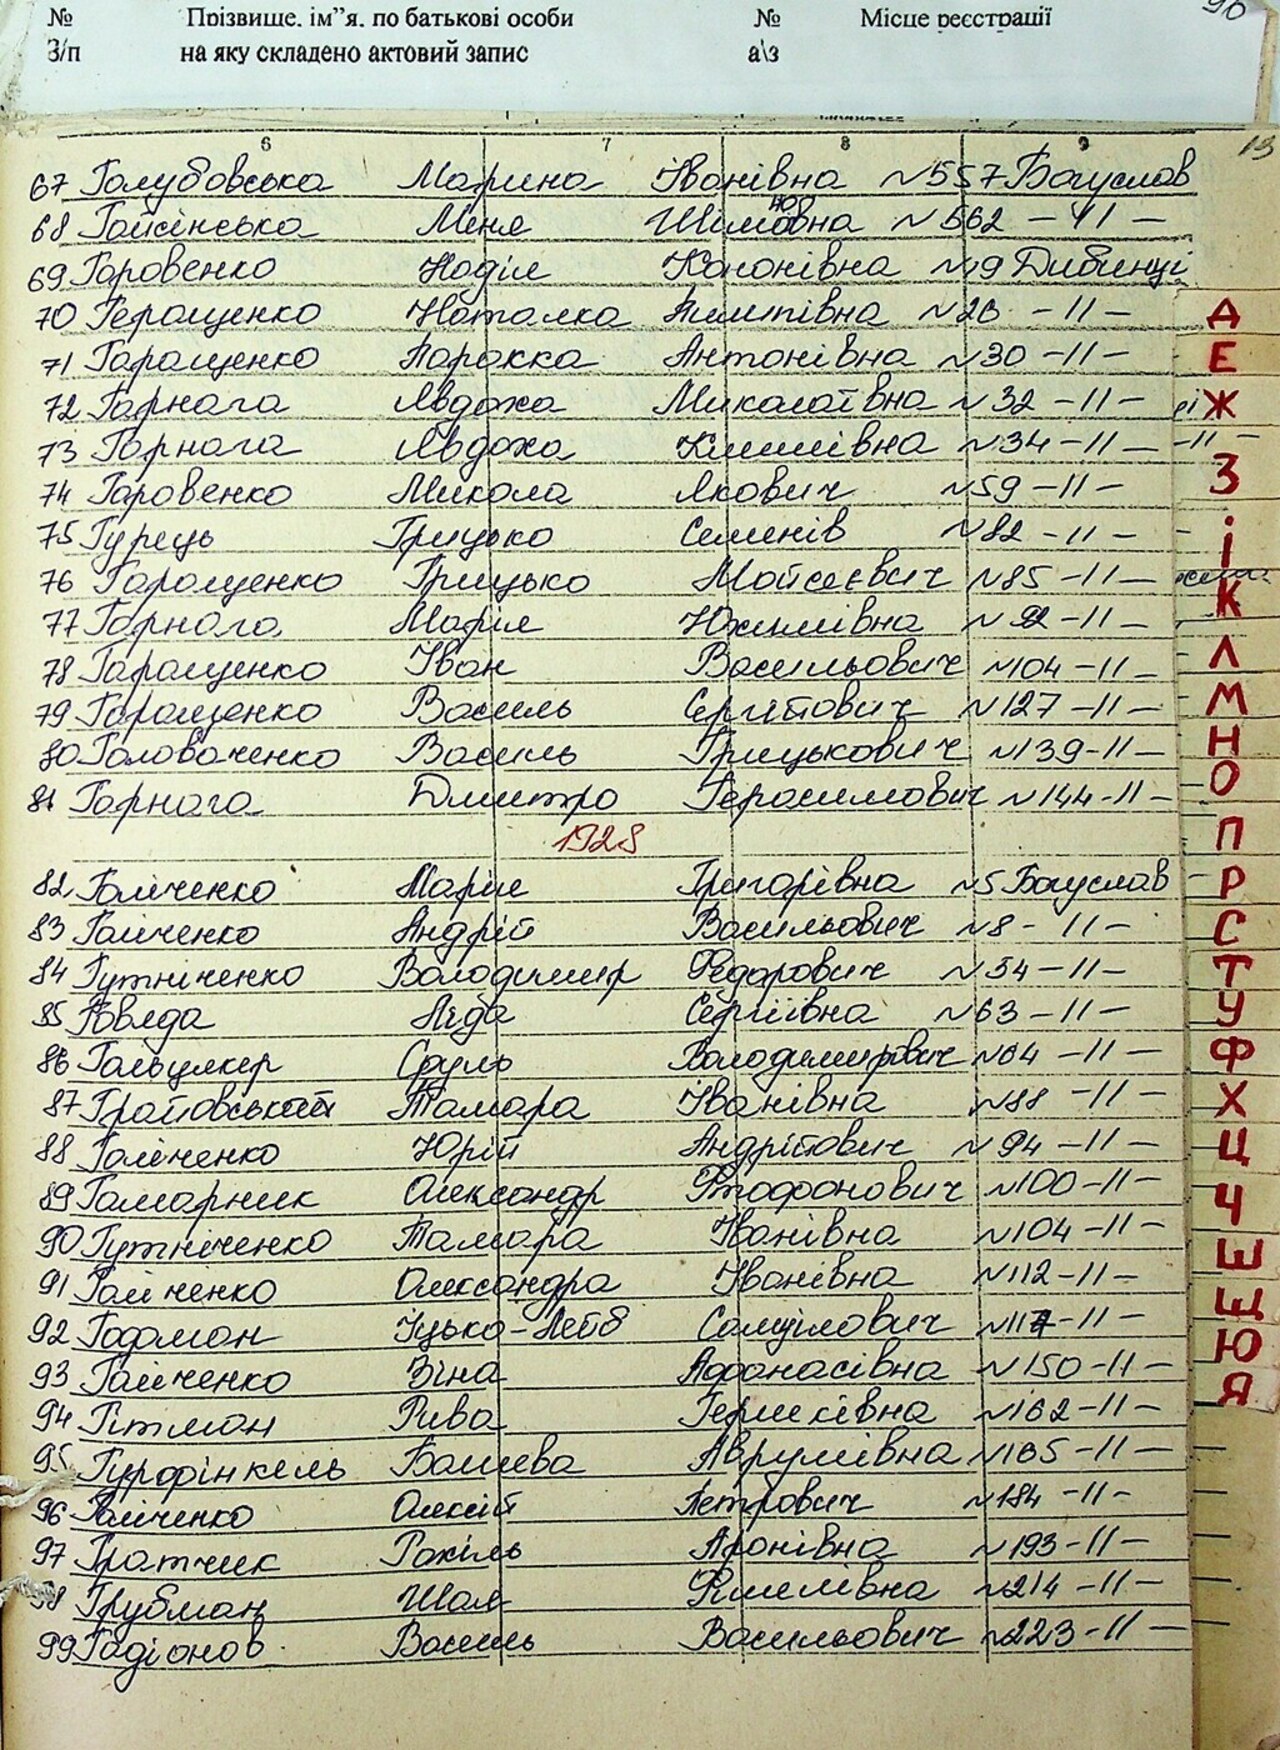 № Прізвище, ім"я, по батькові особи № Місце реєстрації 90
З/п на яку складено актовий запис а\з
6 7 8 9 13
67 Голубовська Марина Іванівна №557 Богуслав
68 Гойсінська Меня Шімовна №562 -11-
69 Горовенко Надія Кононівна №19 Дибинці
70 Геращенко Наталка Пилипівна №26 -11-
71 Гаращенко Параска Антонівна №30 -11-
72 Гарнага Явдоха Миколаївна №32 -11-
73 Гарнага Явдоха Климівна №34 -11- -11-
74 Горовенко Микола Якович №59 -11-
75 Гурець Грицько Семенів №82 -11-
76 Гаращенко Грицько Мойсеєвич №85 -11-
77 Гарнага Марія Юхимівна №92 -11-
78 Гаращенко Іван Васильович №104 -11-
79 Гаращенко Василь Сергійович №127 -11-
80 Головаченко Василь Грицькович №139 -11-
81 Гарнага Дмитро Герасимович №144 -11-
1928
82 Галіченко Марія Григорівна №5 Богуслав
83 Галіченко Андрій Васильович №8 - 11-
84 Гутніченко Володимир Федорович №54 -11-
85 Ліда Сергіївна №63 -11-
86 Сруль Володимирович №64 -11-
87 Тамара Іванівна №88 -11-
88 Галіченко Юрій Андрійович №94 -11-
89 Гамарник Олександр №100 -11-
90 Гутніченко Тамара Іванівна №104 -11-
91 Галіченко Олександра Іванівна №112 -11-
92 Гофман Іцько-Лейб №117 -11-
93 Галіченко Зіна Афанасівна №150 -11-
94 Гітман Рива Гершківна №162 -11-
95 Гурфінкель Башева Аврумівна №165 -11-
96 Галіченко Олексій Петрович №184 -11-
97 Гратчик Рахіль Аронівна №193 -11-
98 Грубман №214 -11-
99 Гадіонов Василь Васильович №223 -11-
Д
Е
Ж
З
і
К
Л
М
Н
О
П
Р
С
Т
У
Ф
Х
Ц
Ч
Ш
Щ
Ю
Я